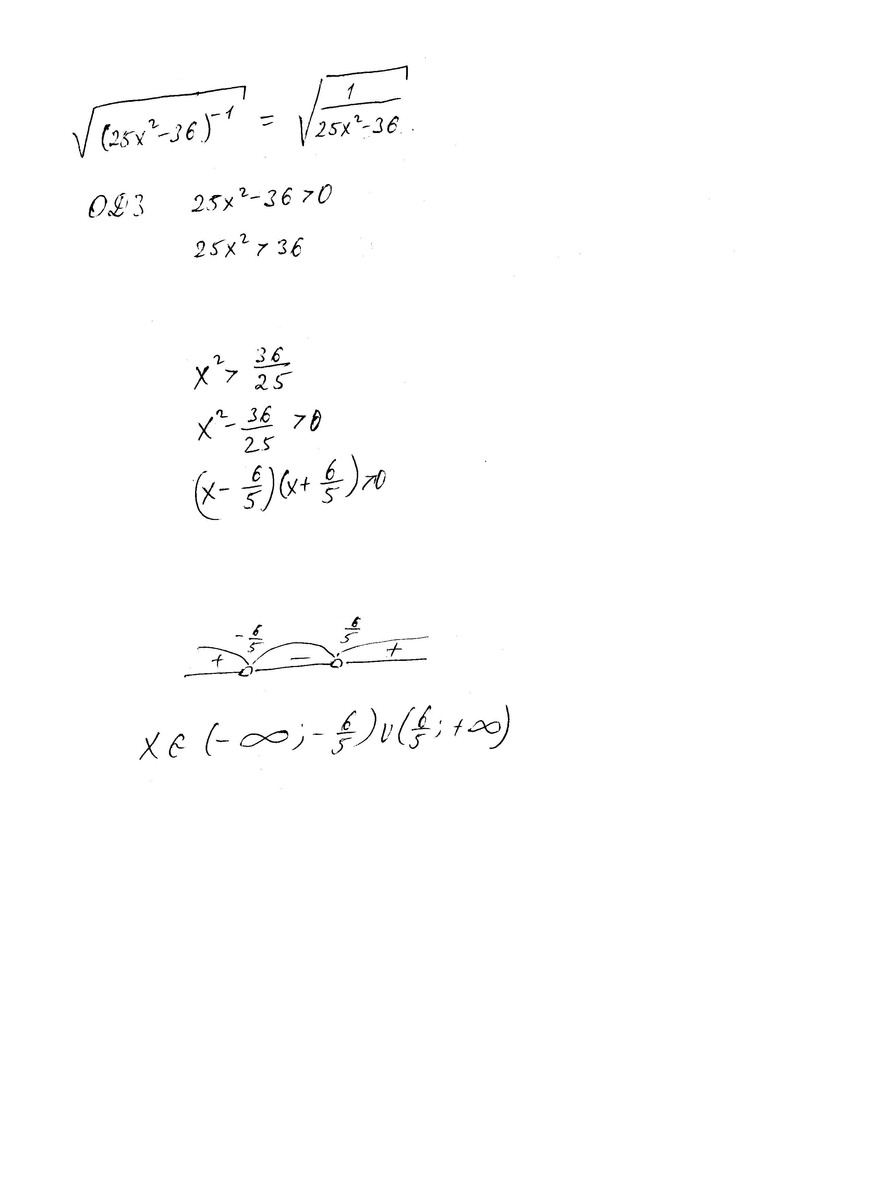 √((25x²-36)⁻¹) = √(1/(25x²-36))
ОДЗ 25x²-36>0
25x²>36
x²> 36/25
x²- 36/25 >0
(x- 6/5)(x+ 6/5)>0
-6/5 6/5
+ - +
x∈(-∞;-6/5)∪(6/5;+∞)